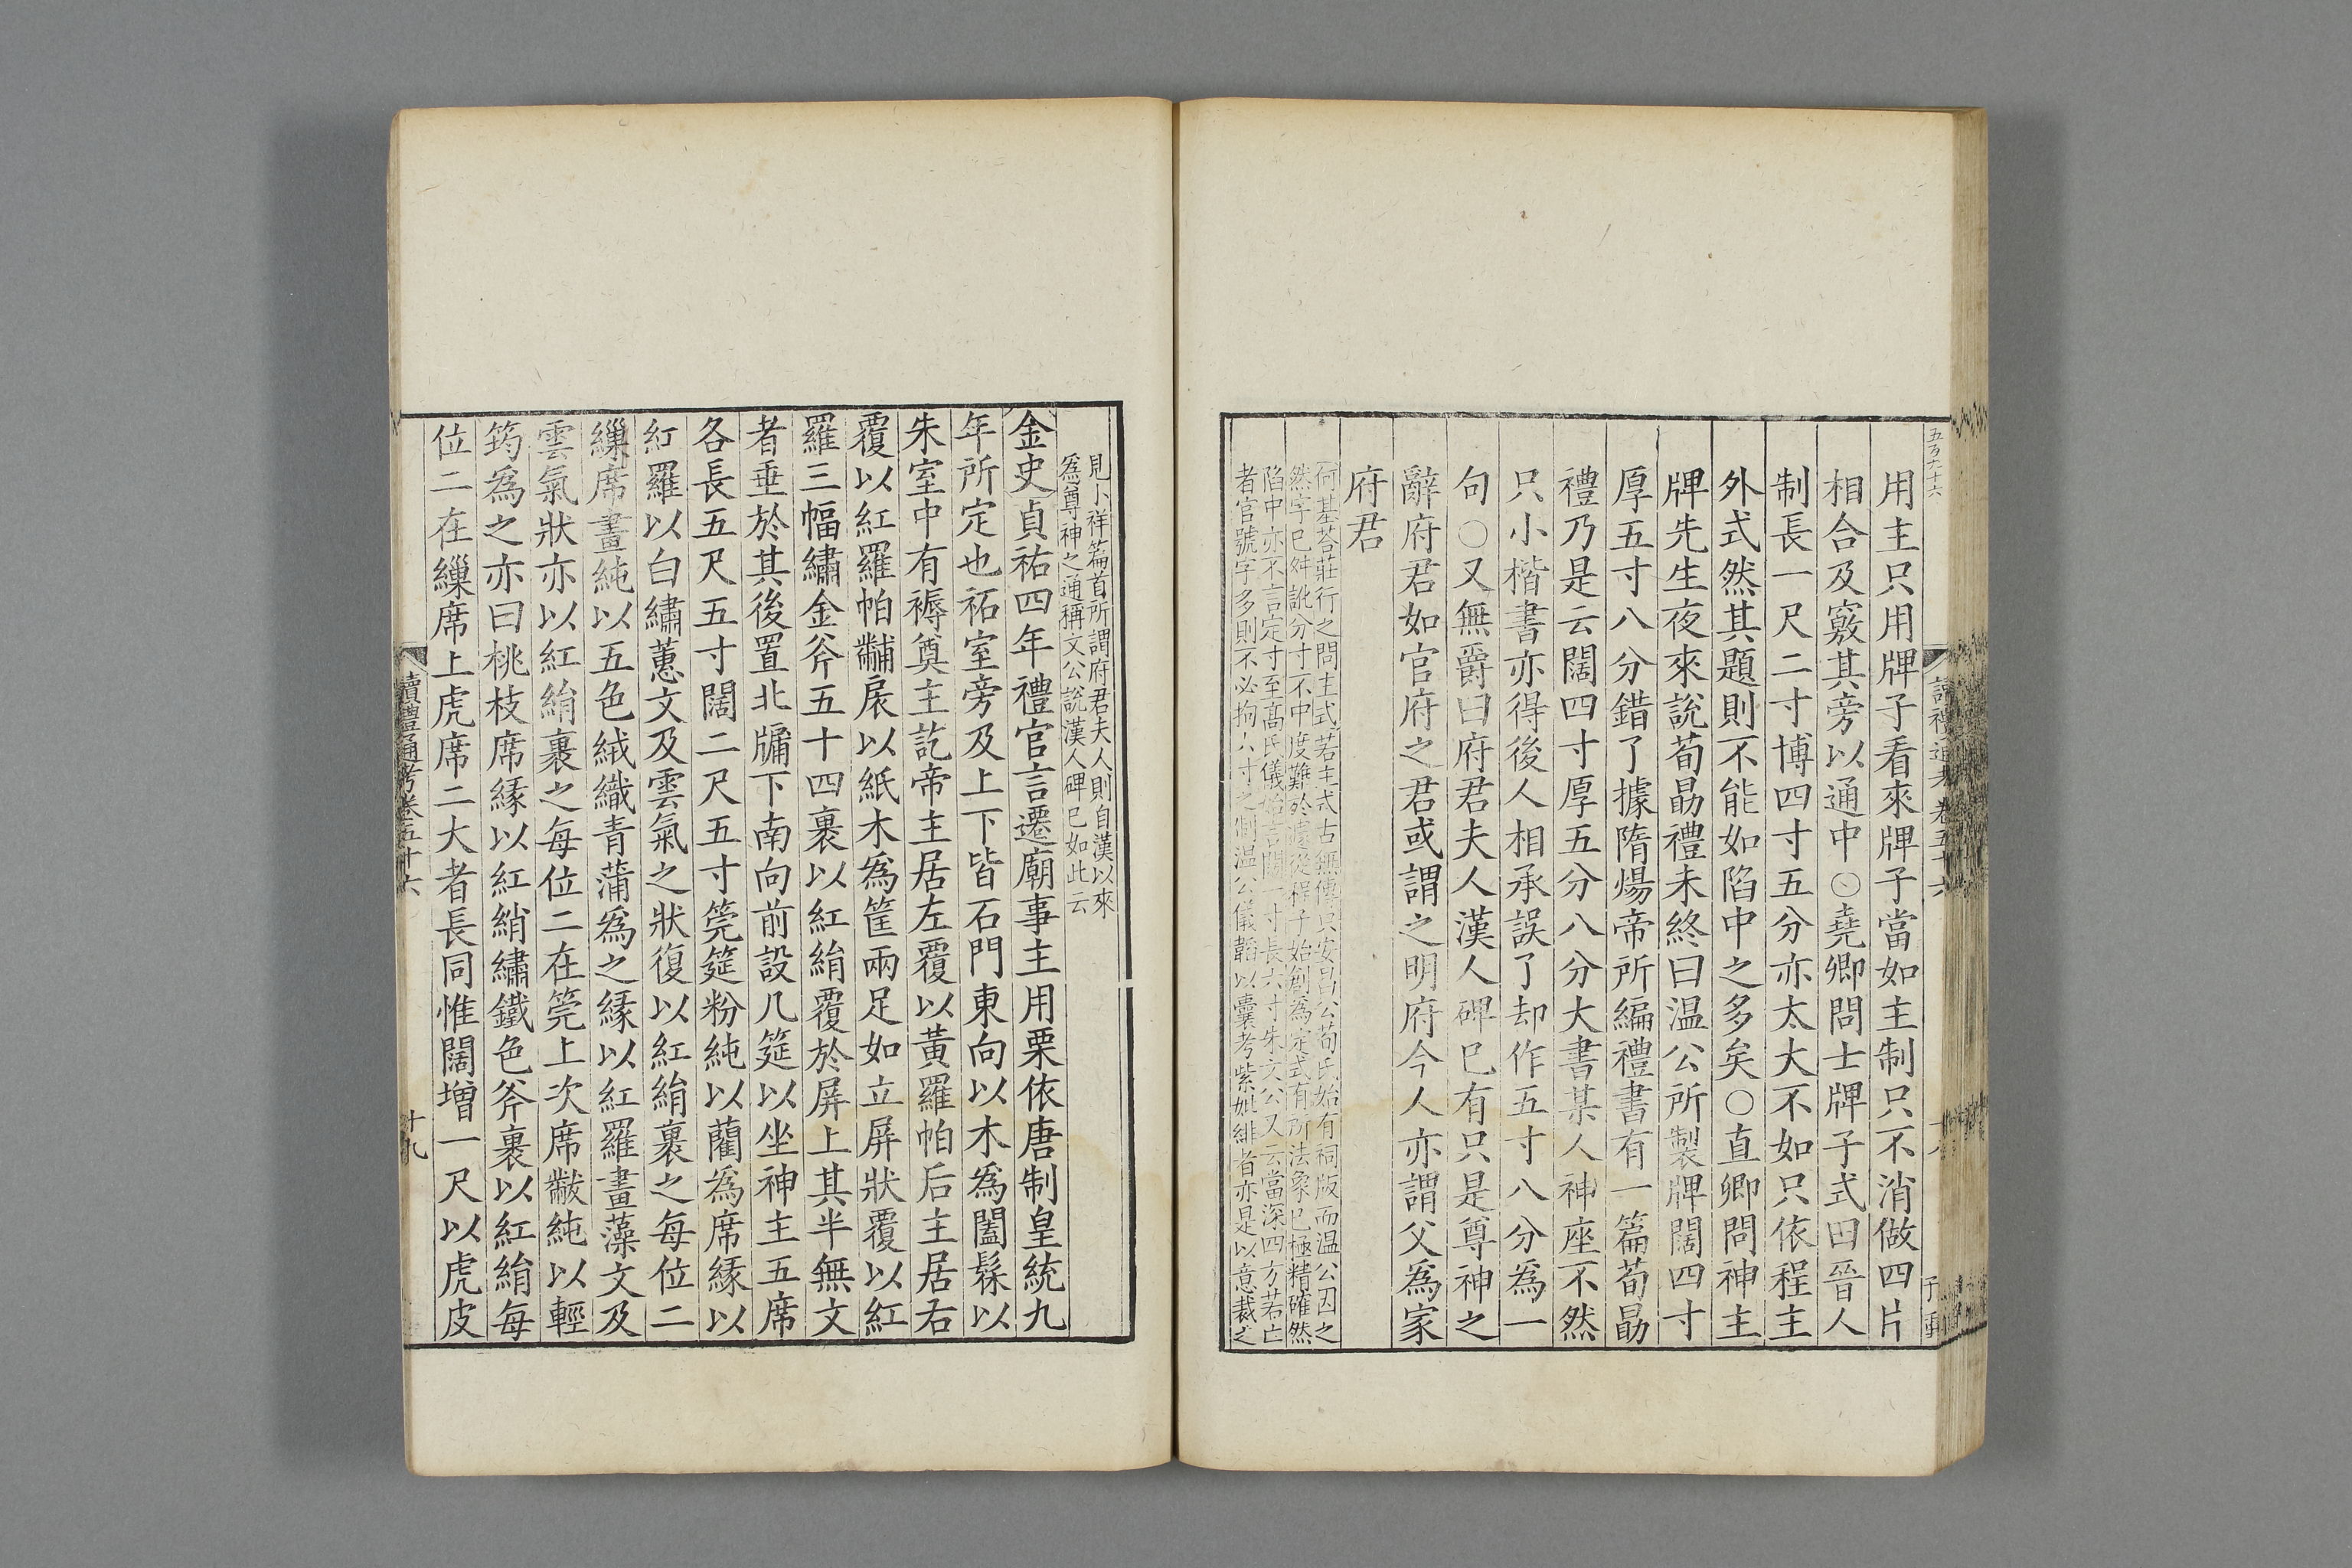 五百九十六
讀禮通考卷五十六
十八
用主只用牌子看來牌子當如主制只不消做四片
相合及竅其旁以通中○堯卿問士牌子式曰晉人
制長一尺二寸博四寸五分亦太大不如只依程主
外式然其題則不能如陷中之多矣○直卿問神主
牌先生夜來說荀勗禮未終曰温公所製牌闊四寸
厚五寸八分錯了據隋煬帝所編禮書有一篇荀勗
禮乃是云闊四寸厚五分八分大書某人神座不然
只小楷書亦得後人相承誤了却作五寸八分爲一
句○又無爵曰府君夫人漢人碑已有只是尊神之
辭府君如官府之君或謂之明府今人亦謂父爲家
府君
何基荅莊行之問主式若主式古無傳只安昌公荀氏始有祠版而温公因之
然字已舛訛分寸不中度難於遽從程子始創爲定式有所法象已極精確然
陷中亦不言定寸至高氏儀始言闊一寸長六寸朱文公又云當深四方若亡
者官號字多則不必拘六寸之制温公儀韜以囊考紫妣緋者亦是以意裁之
見小祥篇首所謂府君夫人則自漢以來
爲尊神之通稱文公說漢人碑已如此云
金史貞祐四年禮官言遷廟事主用栗依唐制皇統九
年所定也祏室旁及上下皆石門東向以木爲闔髹以
朱室中有褥奠主訖帝主居左覆以黃羅帕后主居右
覆以紅羅帕黼扆以紙木爲筐兩足如立屏狀覆以紅
羅三幅繡金斧五十四裹以紅絹覆於屏上其半無文
者垂於其後置北牖下南向前設几筵以坐神主五席
各長五尺五寸闊二尺五寸筦筵粉純以藺爲席緣以
紅羅以白繡蕙文及雲氣之狀復以紅絹裹之每位二
繅席畫純以五色絨織青蒲爲之緣以紅羅畫藻文及
雲氣狀亦以紅絹裹之每位二在筦上次席黻純以輕
筠爲之亦曰桃枝席緣以紅綃繡鐵色斧裹以紅絹每
位二在繅席上虎席二大者長同惟闊增一尺以虎皮
讀禮通考卷五十六
十九